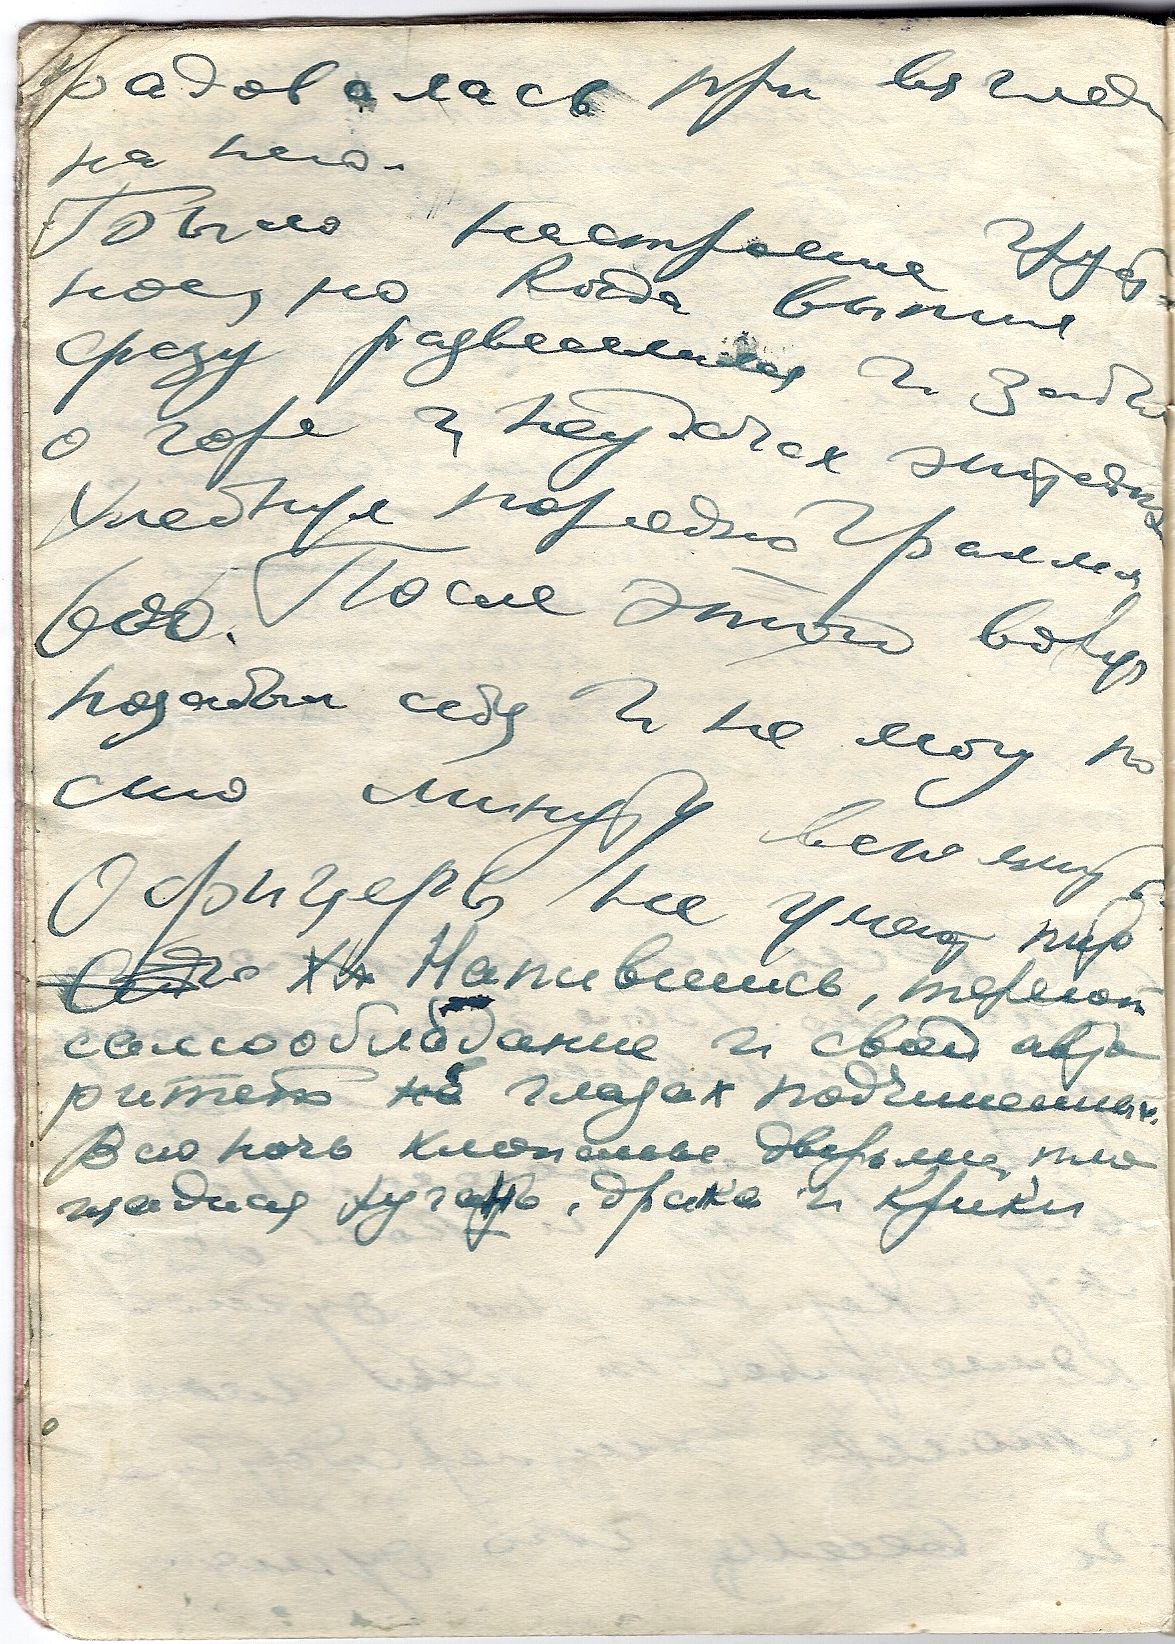 радовалась при взгляде
на него.
Было настроение груст-
ное, но когда выпил
сразу развеселился и забыл
о горе и неудачах житейских
Хлебнул порядно грамм
600. После этого вовсе
позабыл себя и не могу по
сию минуту вспомнить.
Офицеры не умеют пи
Напившись, теряют
самообладание и свой авто
ритет в глазах подчиненных.
Всю ночь хлопанье дверьми, пло
щадная ругань, драка и крики